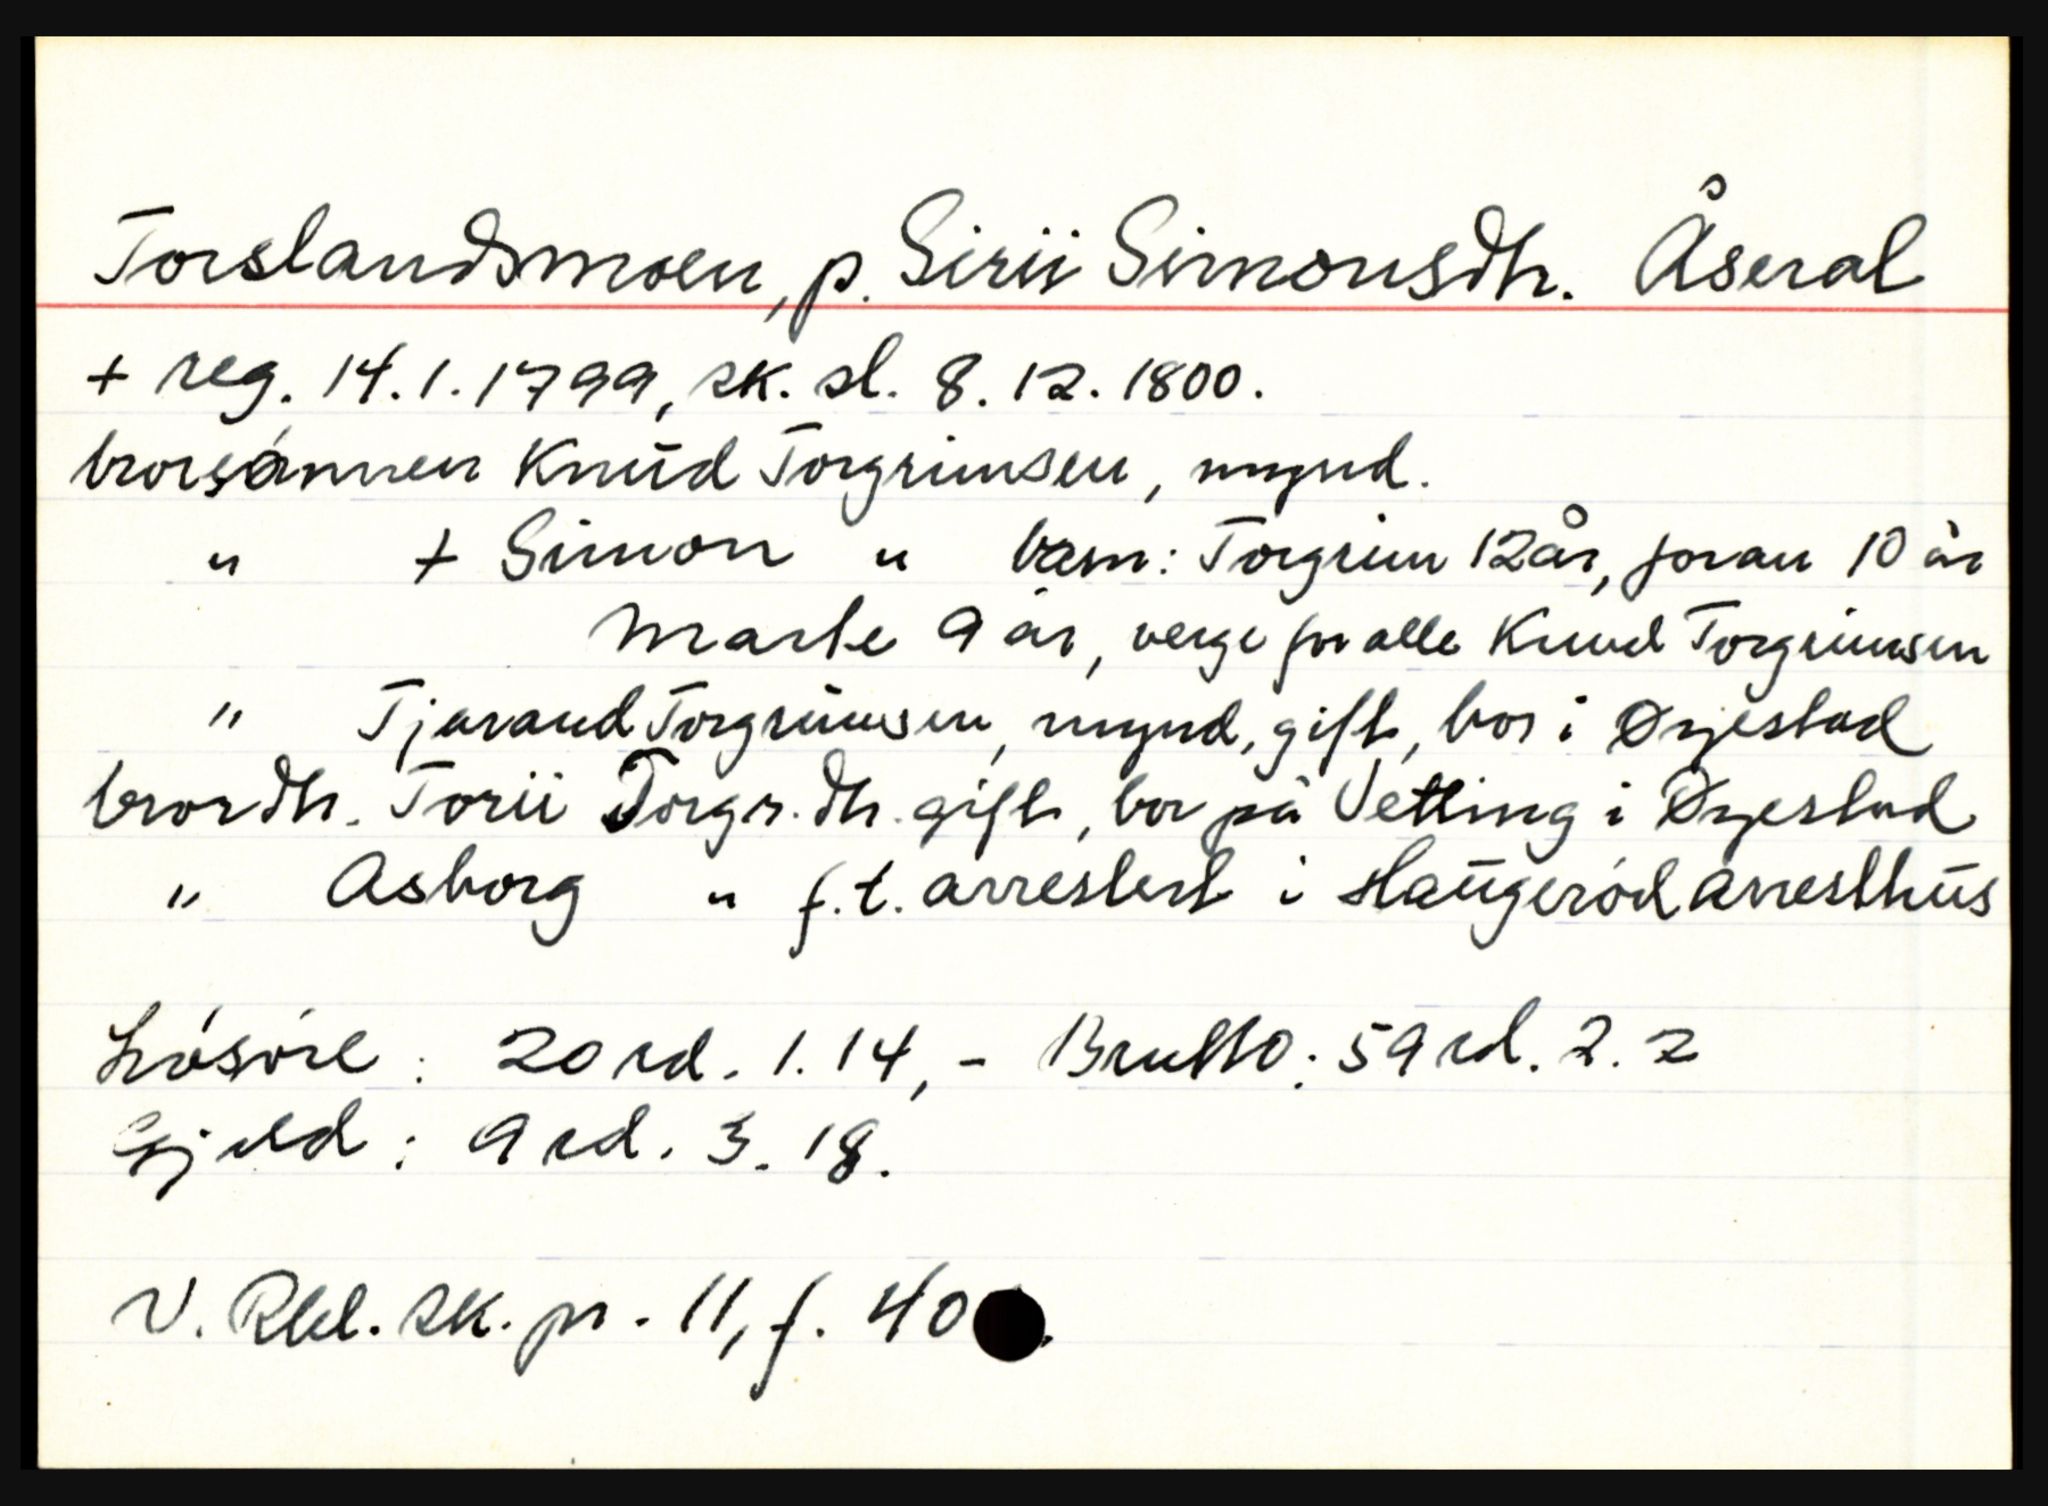 Torslandsmoen, p. Sirii Simonsdtr. Åseral
+ reg. 14.1.1799, sk. sl. 8.12.1800.
brorsønnen Knud Torgrimsen, mynd.
" + Simon " barn: Torgrim 12 år, Joran 10 år
Marte 9 år, verge for alle Knud Torgrimsen
" Tjarand Torgrimsen, mynd, gift, bor i Øyestad
brordtr. Torii Torgr.dtr. gift, bor på Vetting i Øyestad
" Asborg " f.t. arrestert i Haugerød arresthus
Løsøre: 20 rd. 1.14, - Brutto: 59 rd. 2. 2
Gjeld: 9 rd. 3. 18.
V. Rbl. sk. pr. 11, f. 40